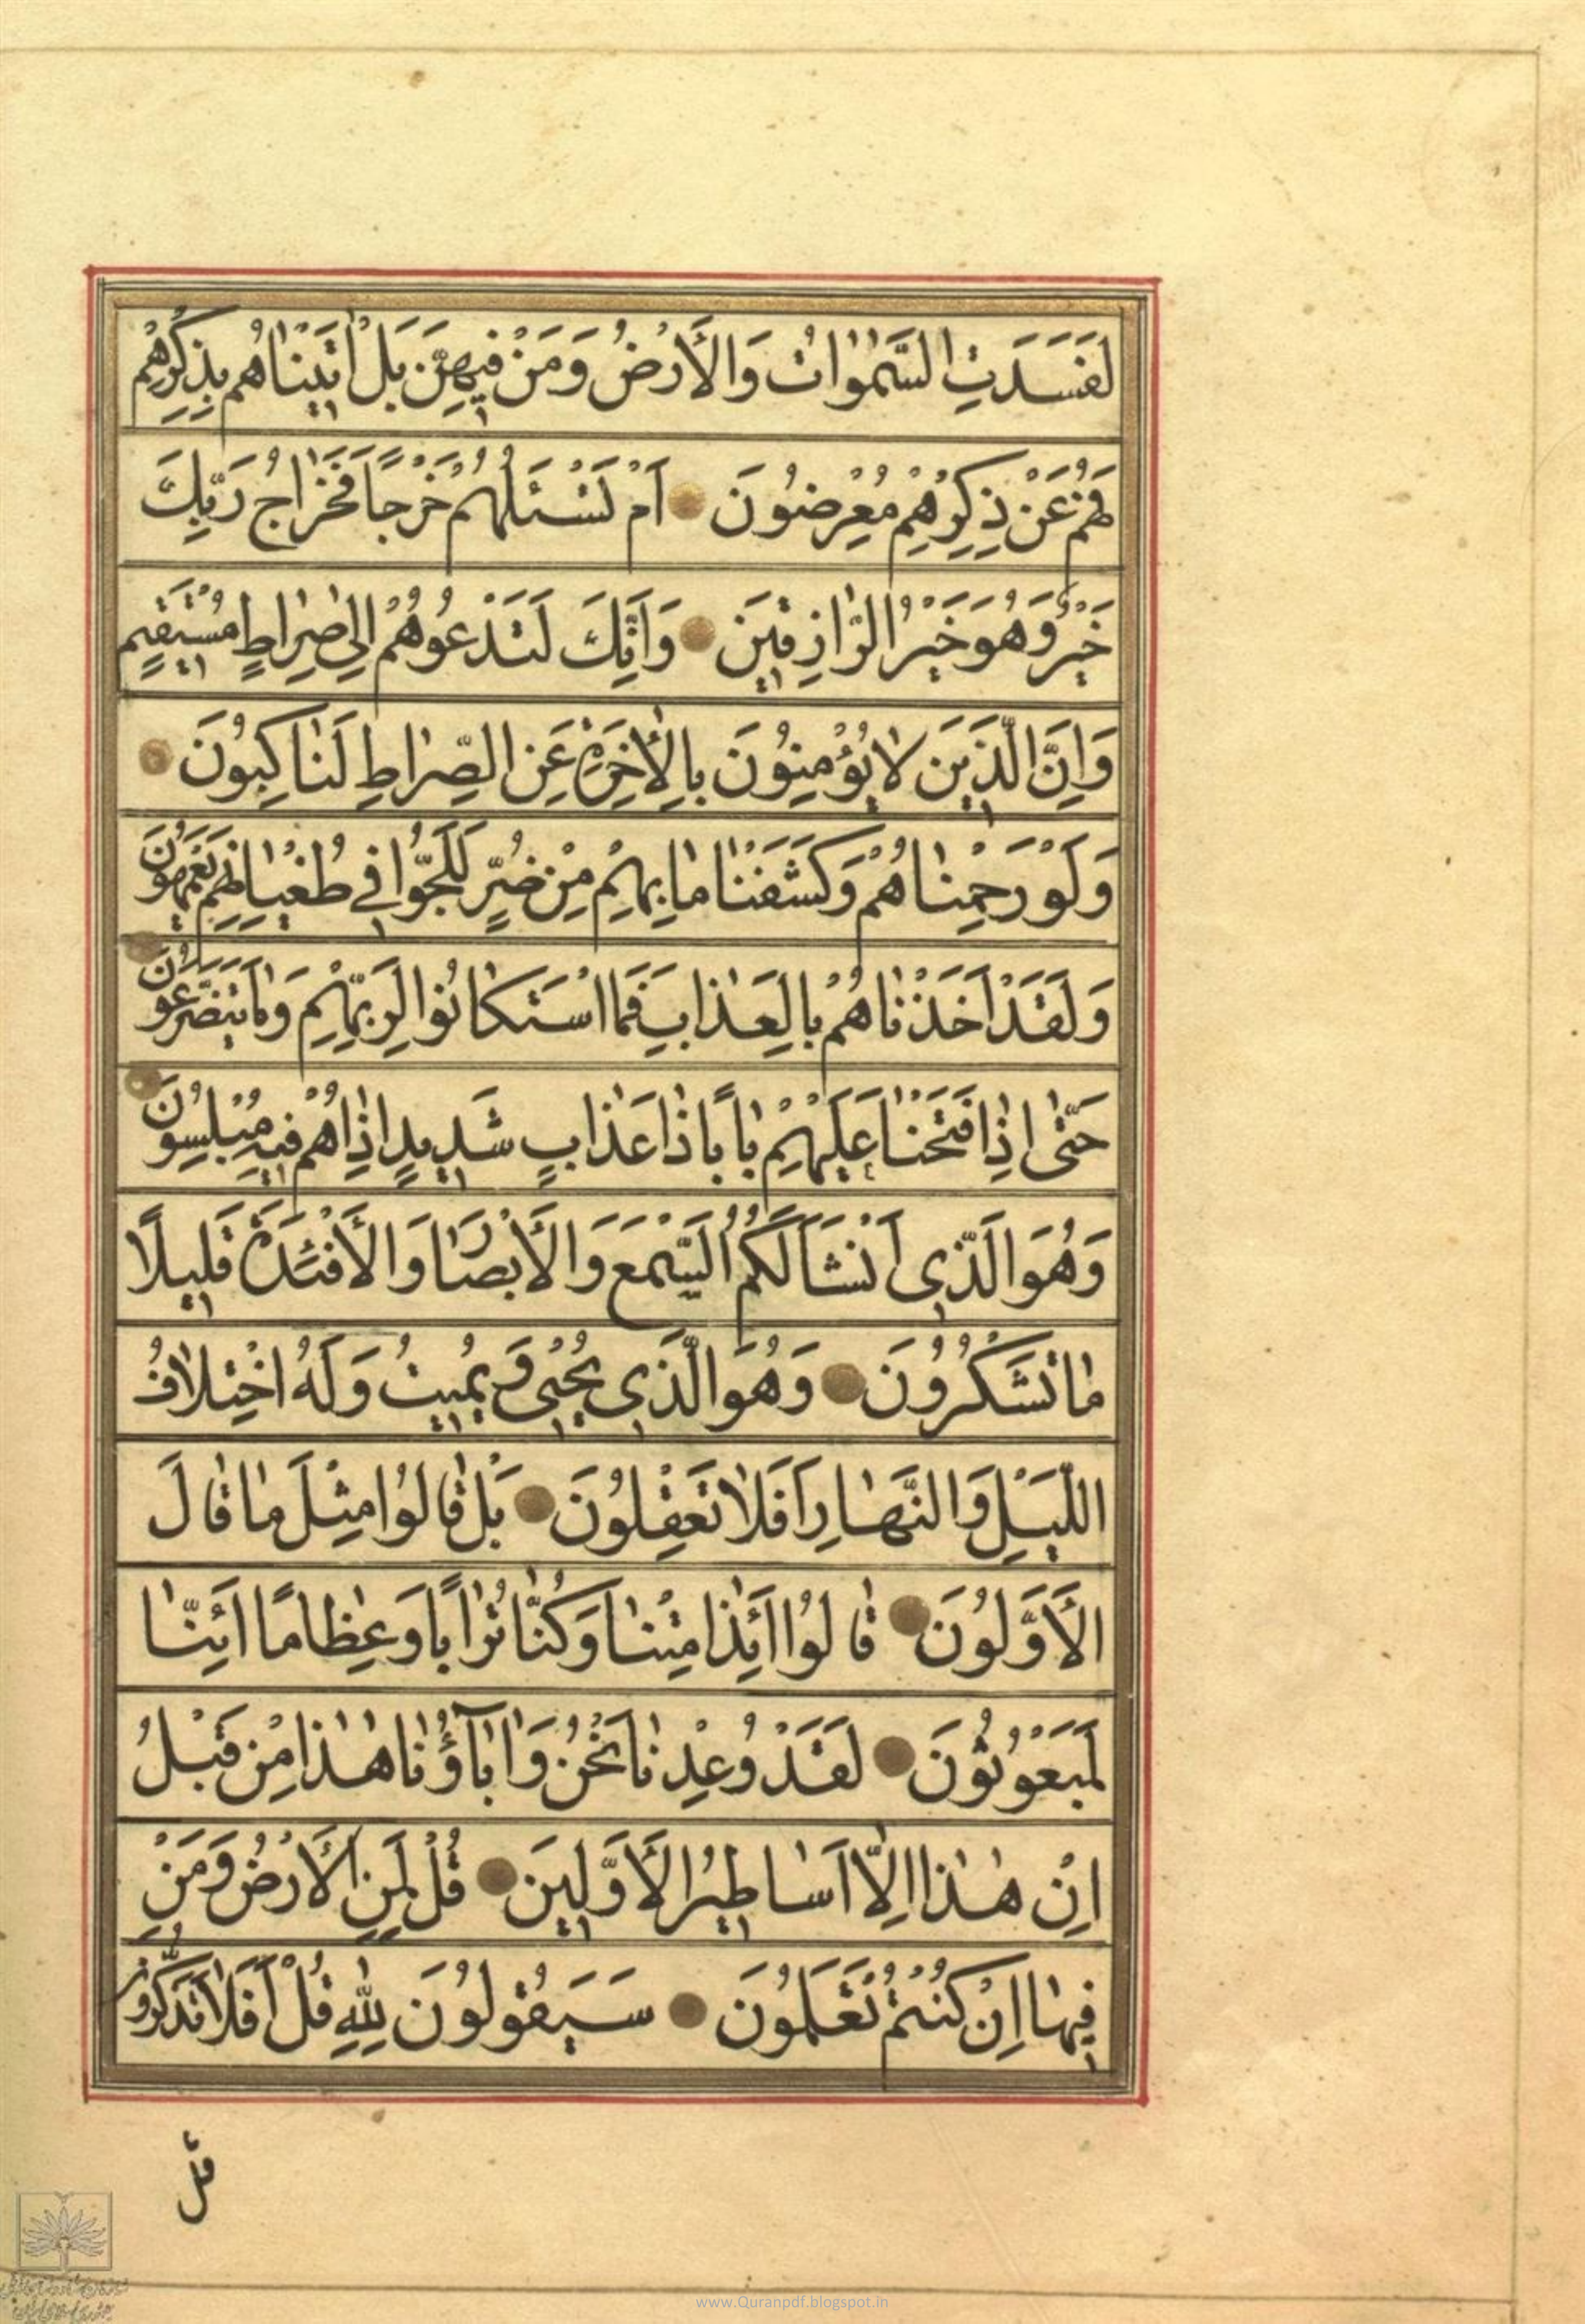 لَفَسَدَتِ السَّمٰوٰاتُ وَالْأَرْضُ وَمَنْ فِيهِنَّ بَلْ اٰتَيْنٰاهُمْ بِذِكْرِهِمْ
فَهُمْ عَنْ ذِكْرِهِمْ مُعْرِضُونَ اَمْ تَسْئَلُهُمْ خَرْجًا فَخَرٰاجُ رَبِّكَ
خَيْرٌ وَهُوَ خَيْرُ الرّٰازِقِينَ وَاِنَّكَ لَتَدْعُوهُمْ اِلىٰ صِرٰاطٍ مُسْتَقِيمٍ
وَاِنَّ الَّذِينَ لاٰ يُؤْمِنُونَ بِالْأٰخِرَةِ عَنِ الصِّرٰاطِ لَنٰاكِبُونَ
وَلَوْ رَحِمْنٰاهُمْ وَكَشَفْنٰا مٰا بِهِمْ مِنْ ضُرٍّ لَلَجُّوا فِي طُغْيٰانِهِمْ يَعْمَهُونَ
وَلَقَدْ اَخَذْنٰاهُمْ بِالْعَذٰابِ فَمَا اسْتَكٰانُوا لِرَبِّهِمْ وَمٰا يَتَضَرَّعُونَ
حَتّٰى اِذٰا فَتَحْنٰا عَلَيْهِمْ بٰابًا ذٰا عَذٰابٍ شَدِيدٍ اِذٰا هُمْ فِيهِ مُبْلِسُونَ
وَهُوَ الَّذِي اَنْشَأَ لَكُمُ السَّمْعَ وَالْأَبْصٰارَ وَالْأَفْئِدَةَ قَلِيلًا
مٰا تَشْكُرُونَ وَهُوَ الَّذِي يُحْيِي وَيُمِيتُ وَلَهُ اخْتِلاٰفُ
اللَّيْلِ وَالنَّهٰارِ اَفَلاٰ تَعْقِلُونَ بَلْ قٰالُوا مِثْلَ مٰا قٰالَ
الْأَوَّلُونَ قٰالُوا اَئِذٰا مِتْنٰا وَكُنّٰا تُرٰابًا وَعِظٰامًا اَئِنّٰا
لَمَبْعُوثُونَ لَقَدْ وُعِدْنٰا نَحْنُ وَاٰبٰآؤُنٰا هٰذٰا مِنْ قَبْلُ
اِنْ هٰذٰا اِلّٰا اَسٰاطِيرُ الْأَوَّلِينَ قُلْ لِمَنِ الْأَرْضُ وَمَنْ
فِيهٰا اِنْ كُنْتُمْ تَعْلَمُونَ سَيَقُولُونَ لِلّٰهِ قُلْ اَفَلاٰ تَذَكَّرُونَ
قُلْ
www.Quranpdf.blogspot.in